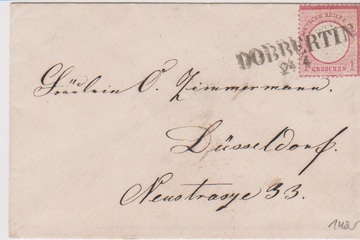 DOBBERTIN
24 4
DEUTSCHE REICHS
1 GROSCHEN 1
Fräulein O. Zimmermann.
Düsseldorf.
Neustrasze 33.